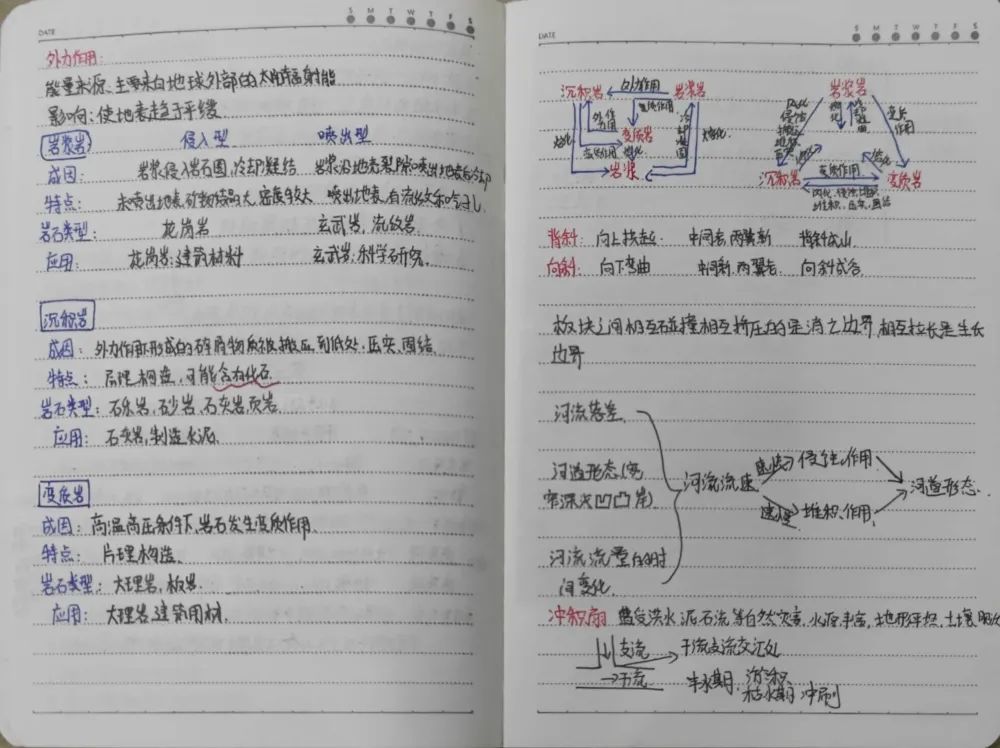 DATE
S M T W T F S
外力作用:
能量来源:主要来自地球外部的太阳辐射能
影响:使地表趋于平缓
岩浆岩 侵入型 喷出型
成因: 岩浆侵入岩石圈,冷却凝结 岩浆沿地壳裂隙喷出地表后冷却
特点: 未喷出地表,矿物结晶大,密度较大 喷出地表,有流纹和气孔
岩石类型: 花岗岩 玄武岩,流纹岩
应用: 花岗岩:建筑材料 玄武岩:科学研究
沉积岩
成因: 外力作用形成的碎屑物质被搬运到低处,压实,固结
特点: 层理构造,可能含有化石
岩石类型: 石灰岩,砂岩,页岩
应用: 石灰岩,制造水泥
变质岩
成因: 高温高压条件下,岩石发生变质作用
特点: 片理构造
岩石类型: 大理岩,板岩
应用: 大理岩,建筑用材
DATE
S M T W T F S
沉积岩 外力作用 岩浆岩
变质作用
外力作用
变质岩
熔化
变质作用
熔化
冷却凝固
熔化
岩浆
岩浆岩
变质作用
熔化
沉积岩 变质作用 变质岩
背斜: 向上拱起 中间老,两翼新 背斜成山
向斜: 向下弯曲 中间新,两翼老 向斜成谷
板块之间相互碰撞相互挤压的是消亡边界,相互拉长是生长
边界
河流落差
河道形态(宽
窄深浅凹凸岸)
河流流速
侵蚀作用
堆积作用
河道形态
河流流量的时
间变化
冲积扇 易受洪水泥石流等自然灾害,水源丰富,地形平坦,土壤肥沃
支流
干流支流交汇处
干流
丰水期:淤积
枯水期 冲刷